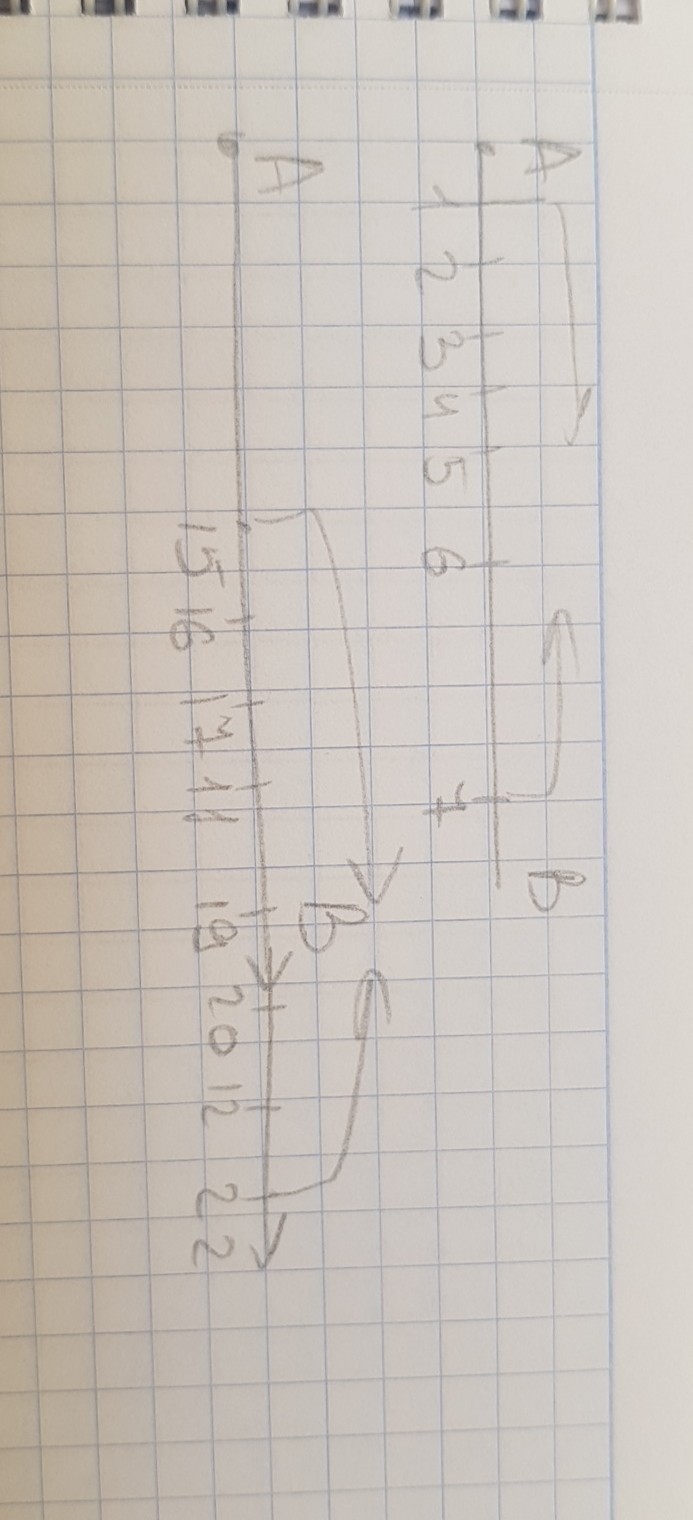 A B
1 2 3 4 5 6 7
A B
15 16 17 11 19 20 12 22